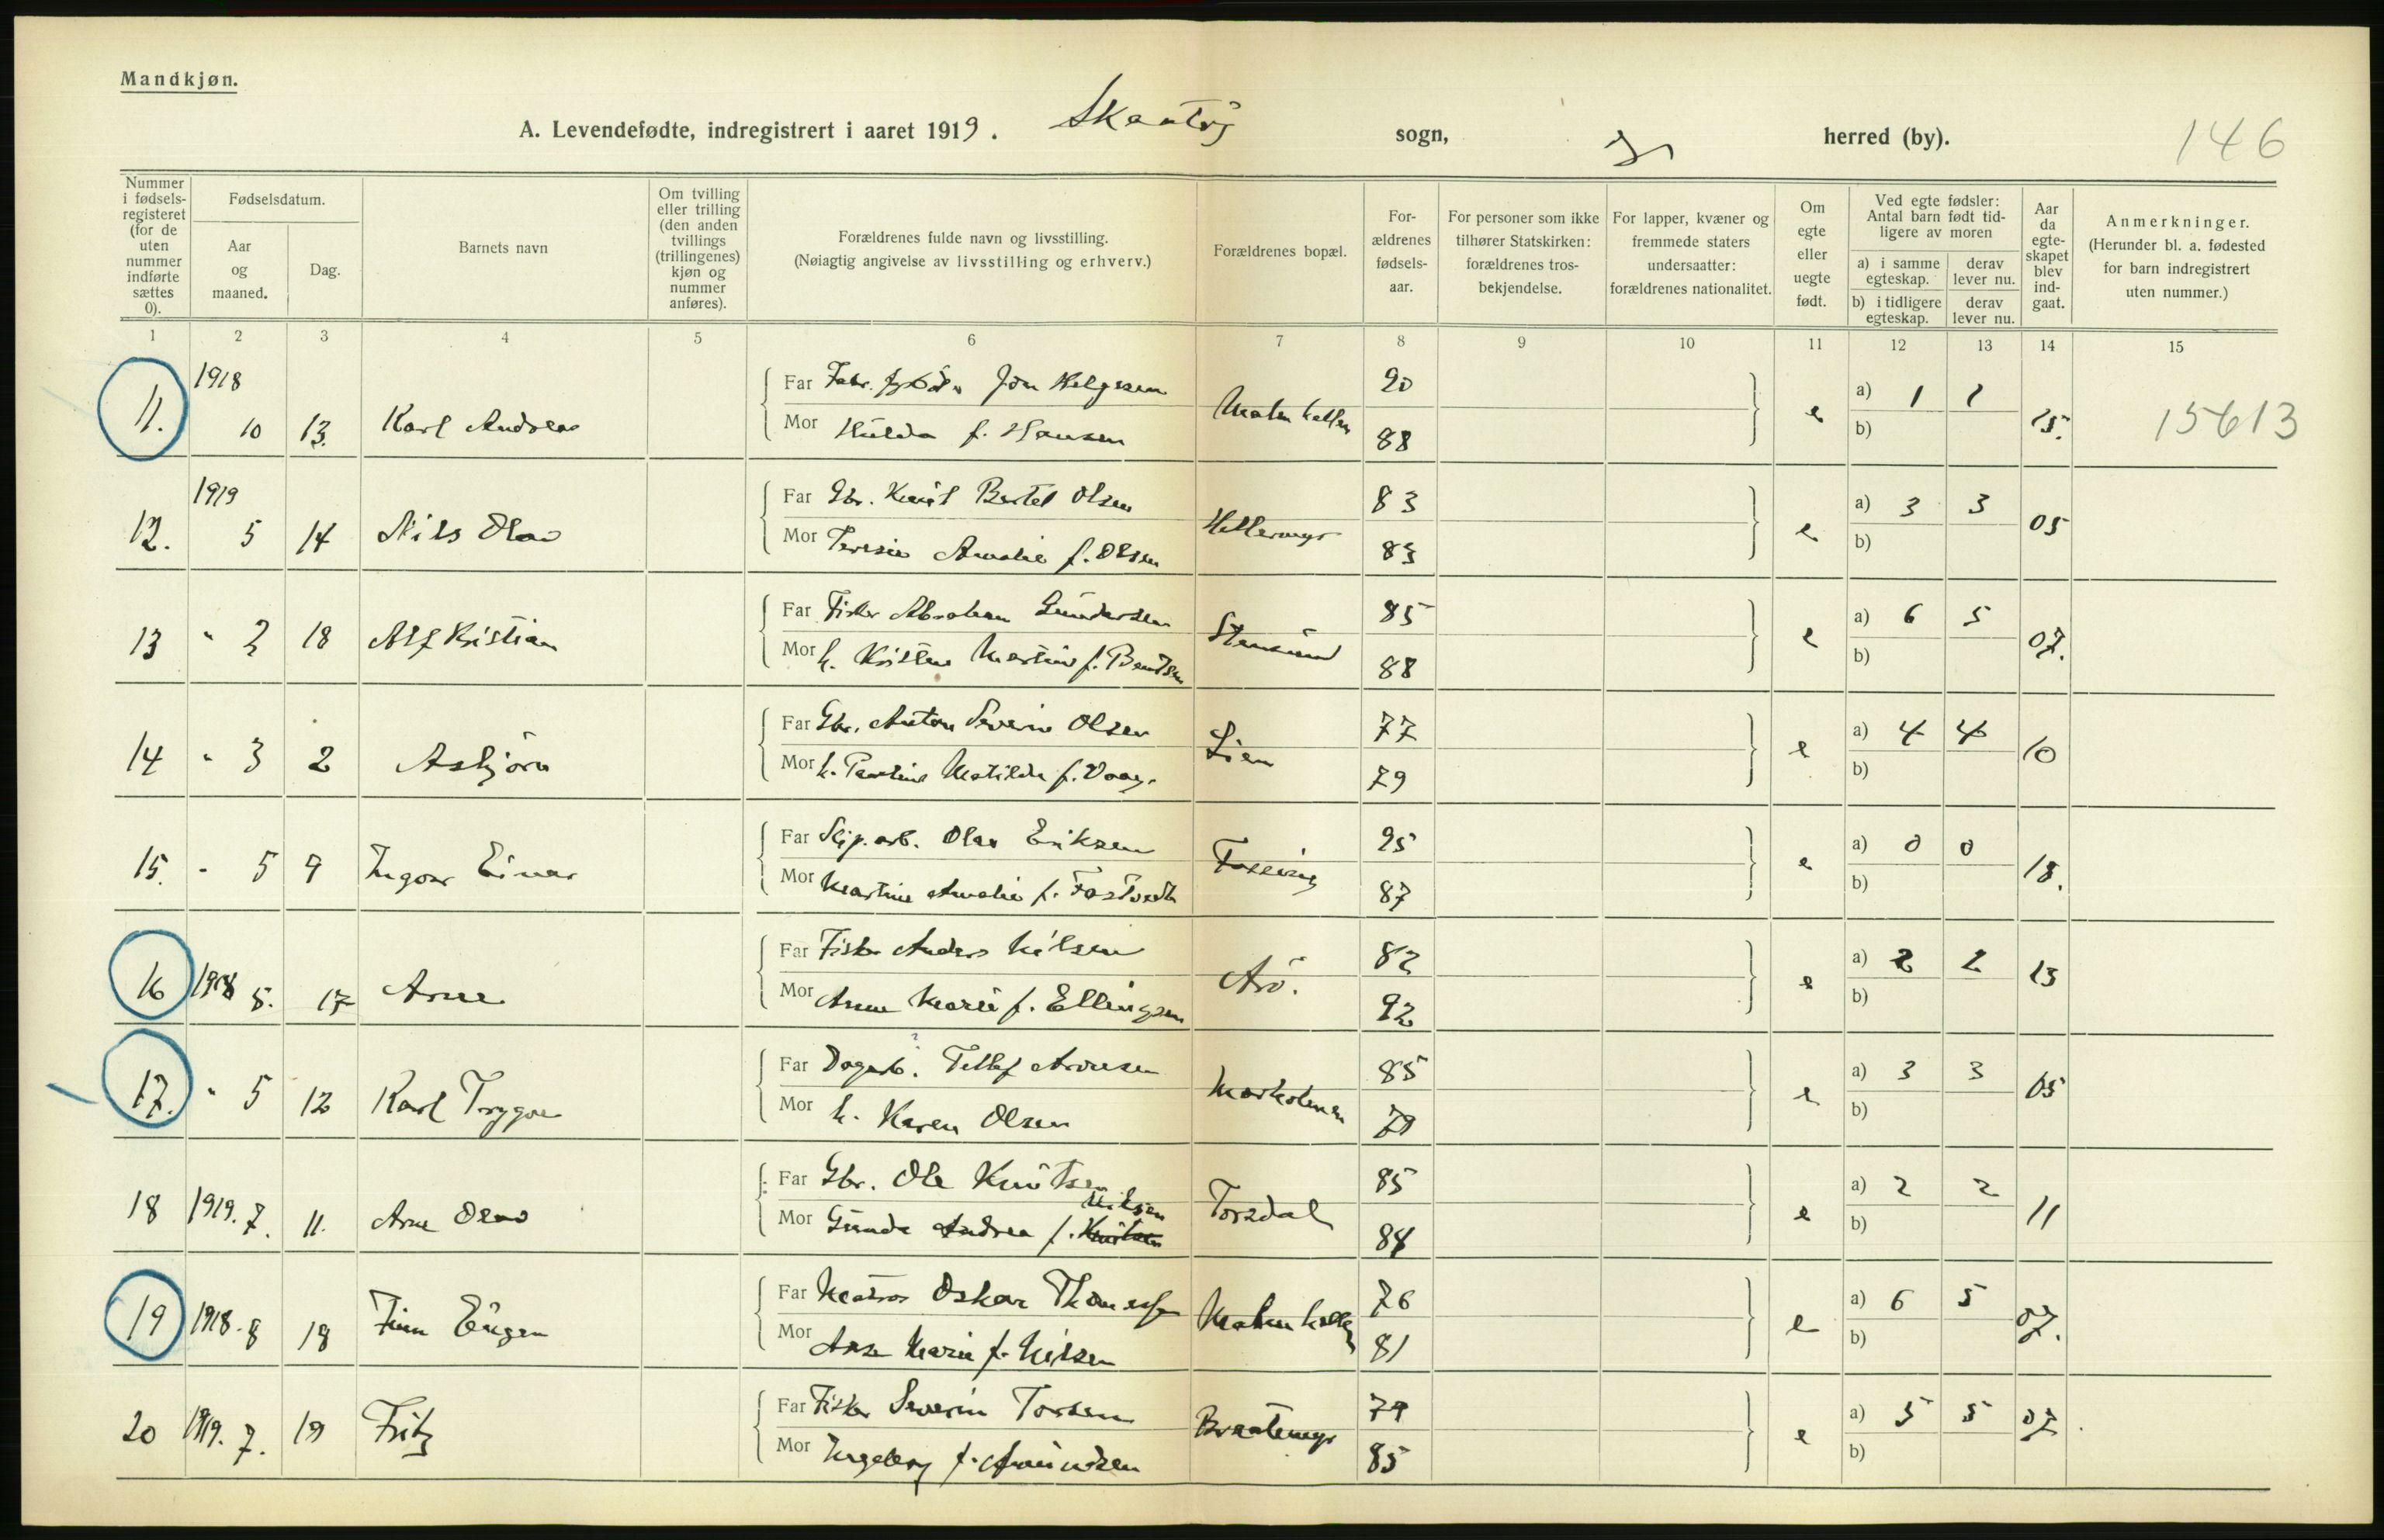 Mandkjøn.
A. Levendefødte, indregistrert i aaret 1919. Skaatøy sogn, herred (by). 146
Nummer i fødselsregisteret (for de uten nummer indførte sættes 0).
Fødselsdatum.
Aar og maaned.
Dag.
Barnets navn
Om tvilling eller trilling (den anden tvillings (trillingenes) kjøn og nummer anføres).
Forældrenes fulde navn og livsstilling.
(Nøiagtig angivelse av livsstilling og erhverv.)
Forældrenes bopæl.
Forældrenes fødselsaar.
For personer som ikke tilhører Statskirken: forældrenes trosbekjendelse.
For lapper, kvæner og fremmede staters undersaatter: forældrenes nationalitet.
Om egte eller uegte født.
Ved egte fødsler: Antal barn født tidligere av moren
a) i samme egteskap. derav lever nu.
b) i tidligere egteskap. derav lever nu.
Aar da egteskapet blev indgaat.
Anmerkninger.
(Herunder bl. a. fødested for barn indregistrert uten nummer.)
1 2 3 4 5 6 7 8 9 10 11 12 13 14 15
1918
11. 10 13. Karl Andreas Far Jon Helgesen 90 e a) 1 1 15. 15613
Mor Hulda f. Hansen 88 b)
1919
12. 5 14 Nils Olav Far Gbr. Knut Bertel Olsen Hellermyr 83 e a) 3 3 05
Mor Teresie Amalie f. Olsen 83 b)
13 " 2 18 Alf Kristian Far Fisker Abraham Gundersen Stensund 85 e a) 6 5 07.
Mor h. Kristine Martine f. Bentsen 88 b)
14 " 3 2 Asbjörn Far Gbr. Anton Severin Olsen Lien 77 e a) 4 4 10
Mor h. Pauline Matilde f. 79 b)
15. " 5 9 Ingvar Einar Far Slip.arb. Olav Eriksen Fossing 95 e a) 0 0 18.
Mor Martine Amalie f. Fostvedt 87 b)
16 1918 5. 17 Arne Far Fisker Anders Nilsen Arö. 82 e a) 2 2 13
Mor Anne Marie f. Ellingsen 92 b)
17. " 5 12 Karl Trygve Far Dagarb. Tellef Arnesen 85 e a) 3 3 05
Mor h. Karen Olsen 79 b)
18 1919. 7. 11. Arne Olav Far Gbr. Ole Knutsen Torsdal 85 e a) 2 2 11
Nilsen
Mor Gunda Andrea f. Knutsen 84 b)
19 1918. 8 18 Finn Eugen Far Matros Oskar Thomassen 76 e a) 6 5 07.
Mor Anne Marie f. Nilsen 81 b)
20 1919. 7. 19 Fritz Far Fisker Severin Torsen Braatemyr 79 e a) 5 5 07
Mor Ingeborg f. Amundsen 85 b)